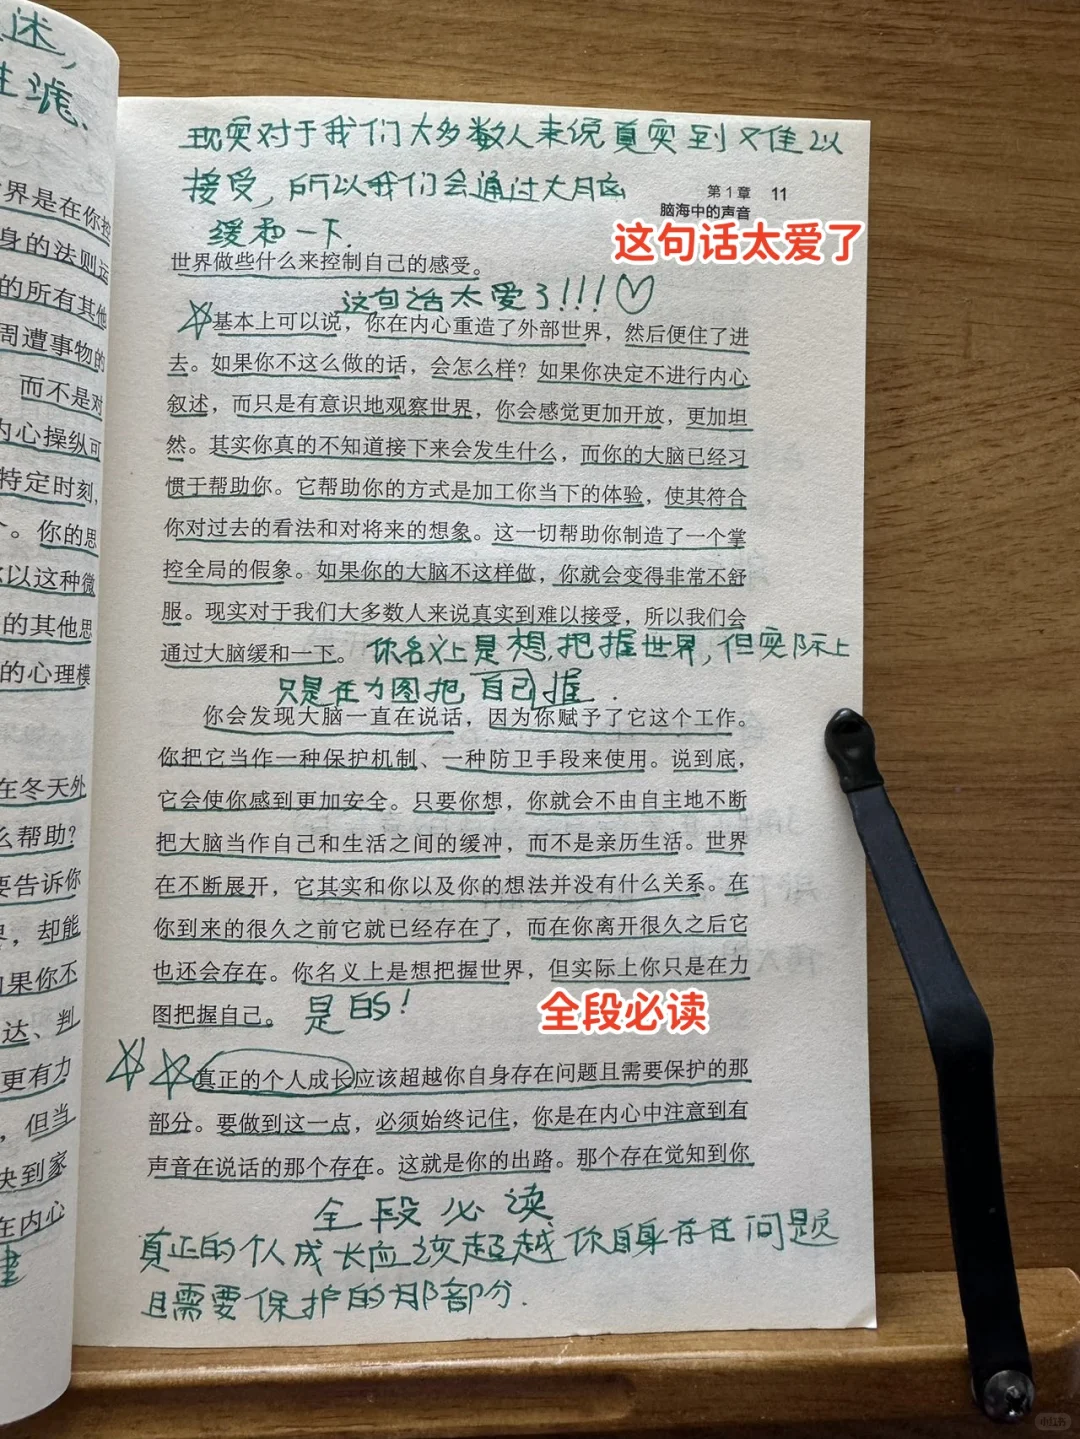 述,
性滤.
世界是在你控
身的法则运
的所有其他
周遭事物的
而不是对
内心操纵可
特定时刻,
。你的思
以这种微
的其他思
的心理模
在冬天外
么帮助?
要告诉你
,却能
如果你不
达、判
更有力
,但当
快到家
在内心
现实对于我们大多数人来说真实到难以
接受,所以我们会通过大脑
缓和一下.
第1章 11
脑海中的声音
这句话太爱了
世界做些什么来控制自己的感受。
这句话太爱了!!!♡
☆基本上可以说,你在内心重造了外部世界,然后便住了进
去。如果你不这么做的话,会怎么样?如果你决定不进行内心
叙述,而只是有意识地观察世界,你会感觉更加开放,更加坦
然。其实你真的不知道接下来会发生什么,而你的大脑已经习
惯于帮助你。它帮助你的方式是加工你当下的体验,使其符合
你对过去的看法和对将来的想象。这一切帮助你制造了一个掌
控全局的假象。如果你的大脑不这样做,你就会变得非常不舒
服。现实对于我们大多数人来说真实到难以接受,所以我们会
通过大脑缓和一下。你名义上是想把握世界,但实际上
只是在力图把自己握.
你会发现大脑一直在说话,因为你赋予了它这个工作。
你把它当作一种保护机制、一种防卫手段来使用。说到底,
它会使你感到更加安全。只要你想,你就会不由自主地不断
把大脑当作自己和生活之间的缓冲,而不是亲历生活。世界
在不断展开,它其实和你以及你的想法并没有什么关系。在
你到来的很久之前它就已经存在了,而在你离开很久之后它
也还会存在。你名义上是想把握世界,但实际上你只是在力
图把握自己。是的!
全段必读
☆☆真正的个人成长应该超越你自身存在问题且需要保护的那
部分。要做到这一点,必须始终记住,你是在内心中注意到有
声音在说话的那个存在。这就是你的出路。那个存在觉知到你
全段必读
真正的个人成长应该超越你自身存在问题
且需要保护的那部分.
小红书